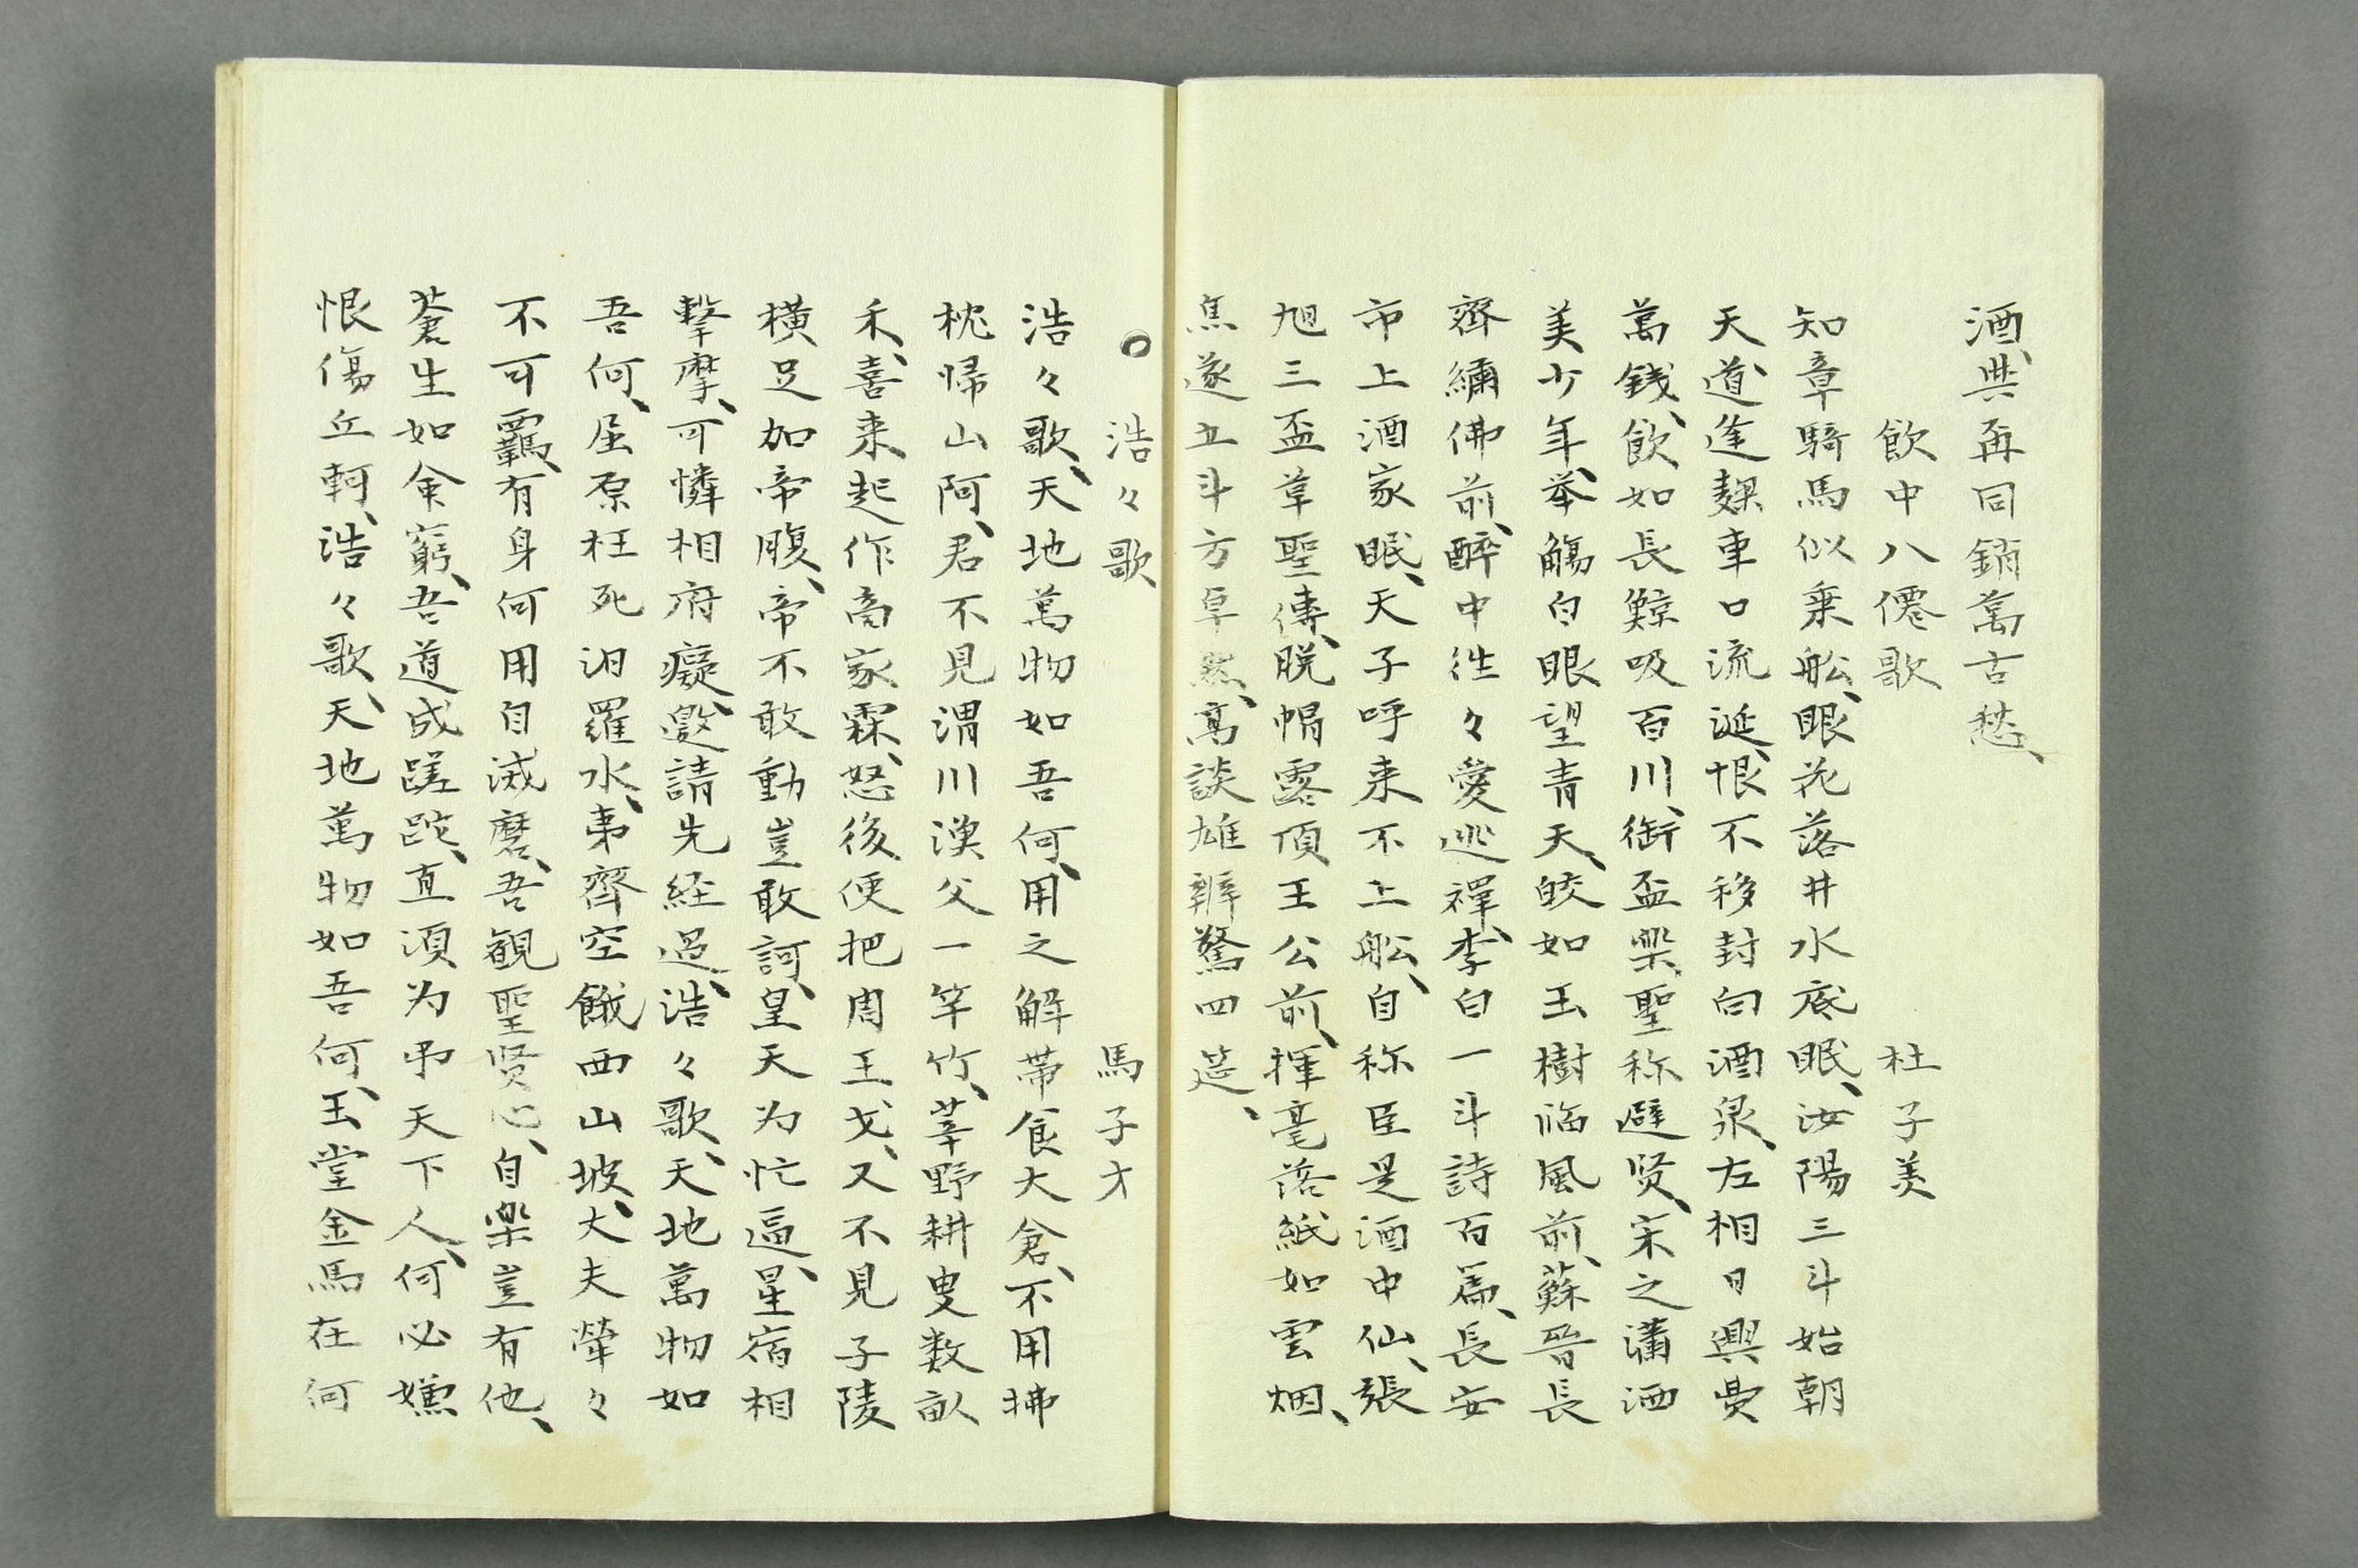 酒、與再同銷萬古愁、
飲中八僊歌 杜子美
知章騎馬似乗舩、眼花落井水底眠、汝陽三斗始朝
天、道逢麹車口流涎、恨不移封向酒泉、左相日興費
萬銭、飲如長鯨吸百川、銜盃楽聖称避賢、宋之瀟洒
美少年、挙觴白眼望青天、皎如玉樹臨風前、蘇晉長
齊繍佛前、醉中徃々愛逃禅、李白一斗詩百篇、長安
市上酒家眠、天子呼来不上舩、自称臣是酒中仙、張
旭三盃草聖傳、脱帽露頂王公前、揮毫落紙如雲烟、
焦遂五斗方卓然、髙談雄辯驚四莚、
○浩々歌 馬子才
浩々歌、天地萬物如吾何、用之解帯食大倉、不用拂
枕帰山阿、君不見渭川漁父一竿竹、莘野耕叟数畝
禾、喜来起作商家霖、怒後便把周王戈、又不見子陵
横足加帝腹、帝不敢動豈敢訶、皇天为忙逼、星宿相
撃摩、可憐相府癡、邀請先経過、浩々歌、天地萬物如
吾何、屈原枉死汨羅水、夷齊空餓西山坡、丈夫犖々
不可羈、有身何用自滅磨、吾観聖賢心、自楽豈有他、
蒼生如余窮、吾道成蹉跎、直須为弔天下人、何必嫌
恨傷丘軻、浩々歌、天地萬物如吾何、玉堂金馬在何